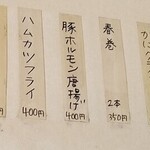 春巻
2本
350円
豚ホルモン唐揚げ
400円
ハムカツフライ
400円
円